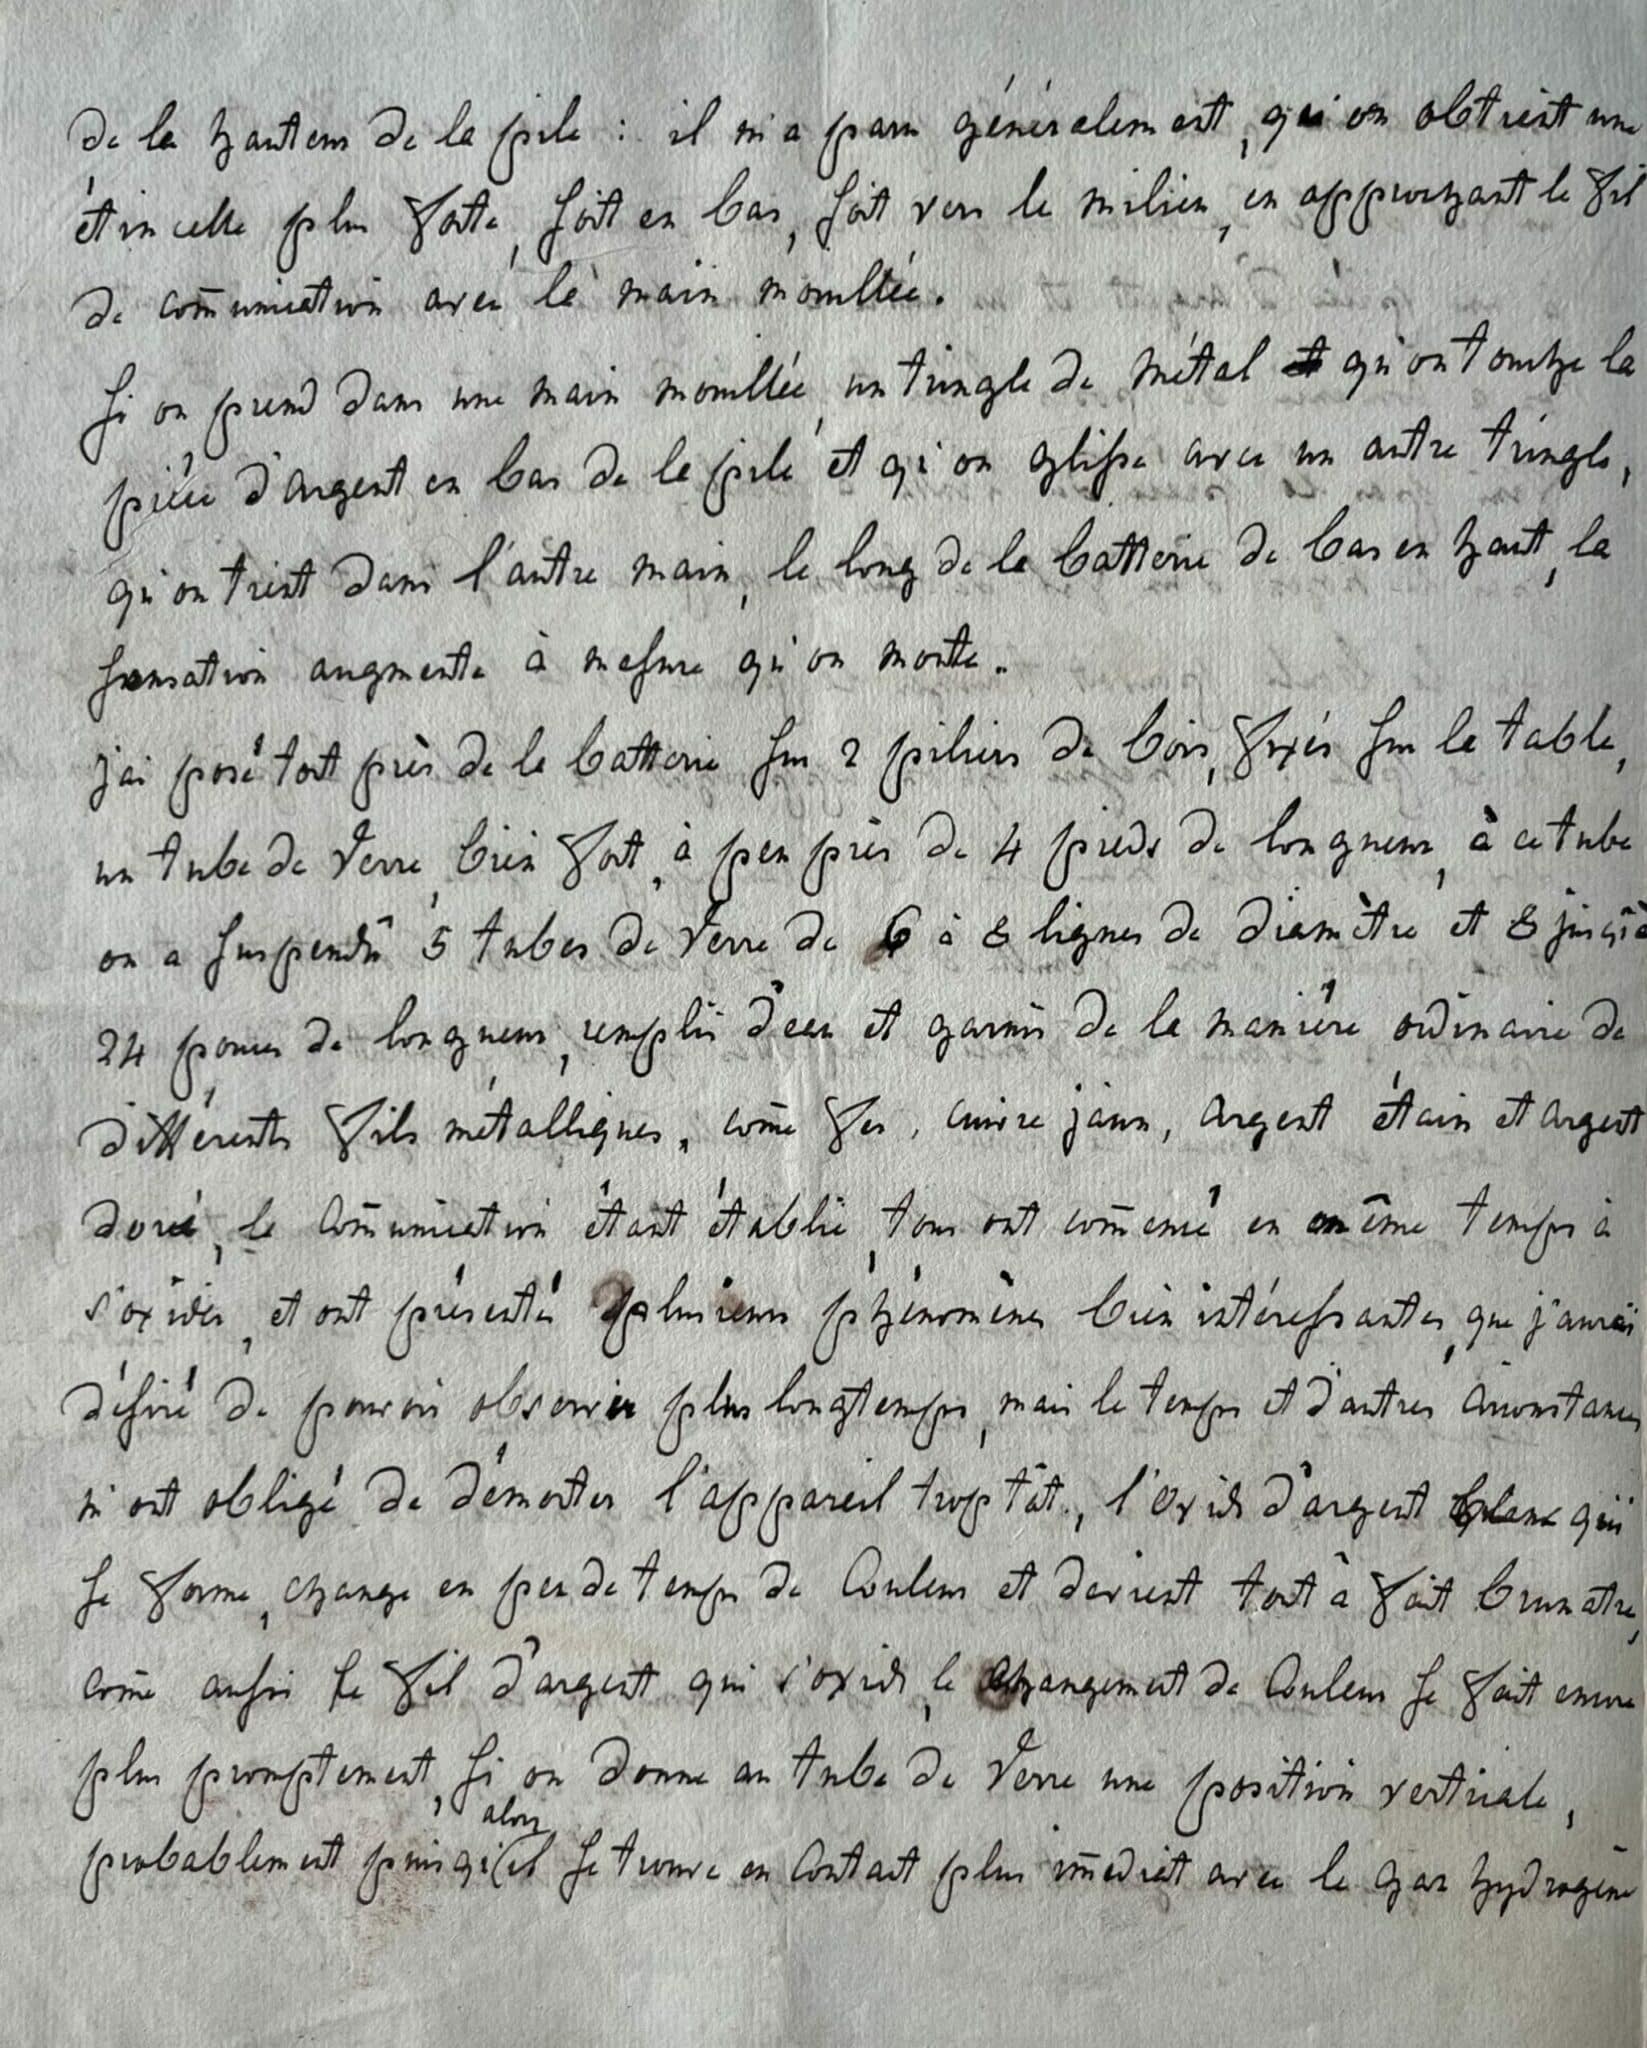 de la hauteur de la pile : il m'a paru généralement, qu'on obtient une
étincelle plus forte, soit en bas, soit vers le milieu, en approchant le fil
de com̄unication avec la main mouillée.
Si on prend dans une main mouillée, un tringle de métal et qu'on touche la
pièce d'argent en bas de la pile et qu'on glisse avec un autre tringle,
qu'on tient dans l'autre main, le long de la batterie de bas en haut, la
sensation augmente à mesure qu'on monte.
j'ai posé tout près de la batterie sur 2 piliers de bois, fixés sur la table,
un tube de Verre, bien fort, à peu près de 4 pieds de longueur, à ce tube
on a suspendû 5 tubes de Verre de 6 à 8 lignes de diamètre et 8 jusqu'à
24 pouces de longueur, remplis d'eau et garnis de la manière ordinaire de
différents fils métalliques, com̄e fer, cuivre jaun, argent étain et argent
doré, la Com̄unication étant établie, tous ont com̄encé en même temps à
s'oxider, et ont présentés plusieurs phénomènes bien intéressantes, que j'aurai
désiré de pouvoir observer plus longtemps, mais le temps et d'autres Circonstances
m'ont obligé de démonter l'appareil trop tôt, l'oxide d'argent blanc qui
se forme, change en peu de temps de Couleur et devient tout à fait brunatre,
com̄e aussi le fil d'argent qui s'oxide, le changement de Couleur se fait encore
plus promptement, si on donne au tube de Verre une position verticale,
alors
probablement puisqu'il se trouve en Contact plus im̄ediat avec le gaz hydrogène